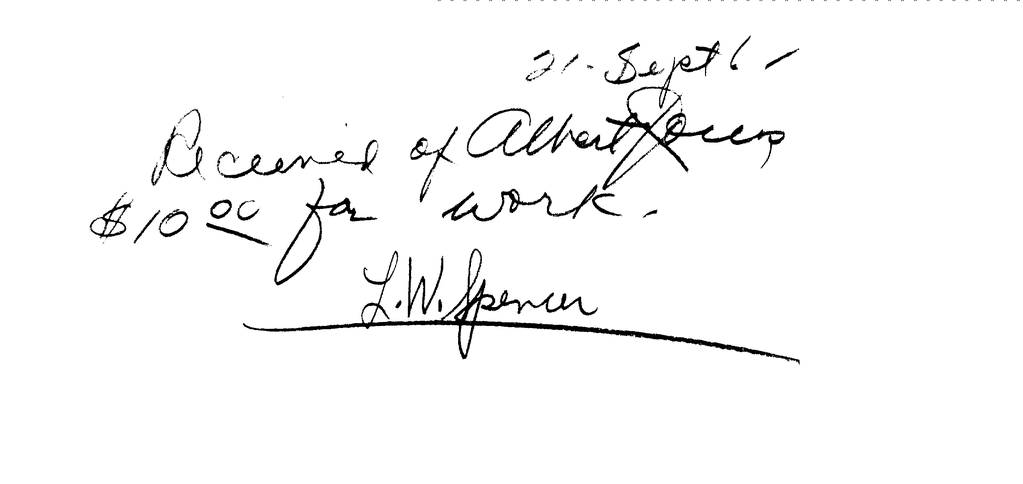 21 - Sept 61
Received of Albert
$10 00 for work.
L.W. Spencer